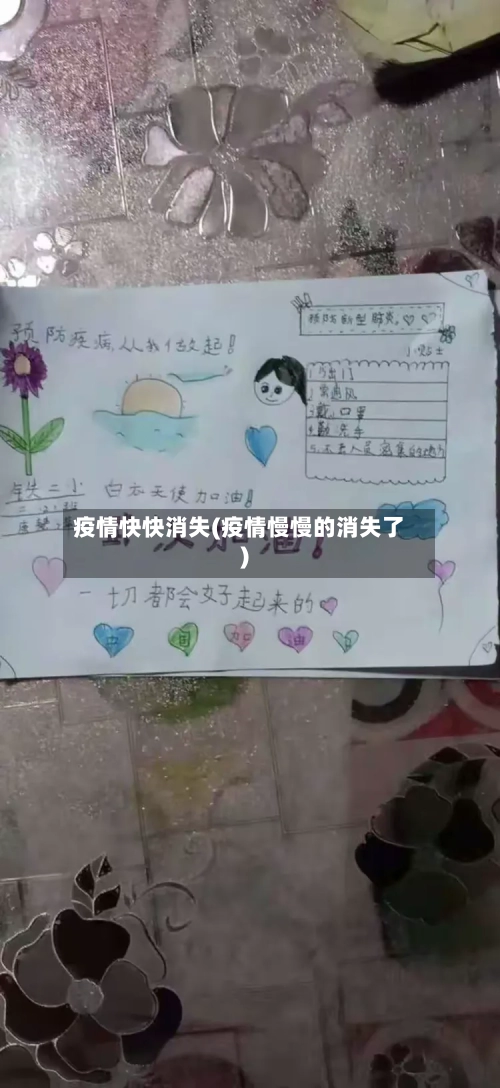 预防新型肺炎。
预防疾病,从我们做起!
1.少出门
2.常通风
3.戴口罩
4.勤洗手
5.不去人员密集的地方
铁二小
白衣天使加油!
疫情快快消失(疫情慢慢的消失了
)
一切都会好起来的
中国加油